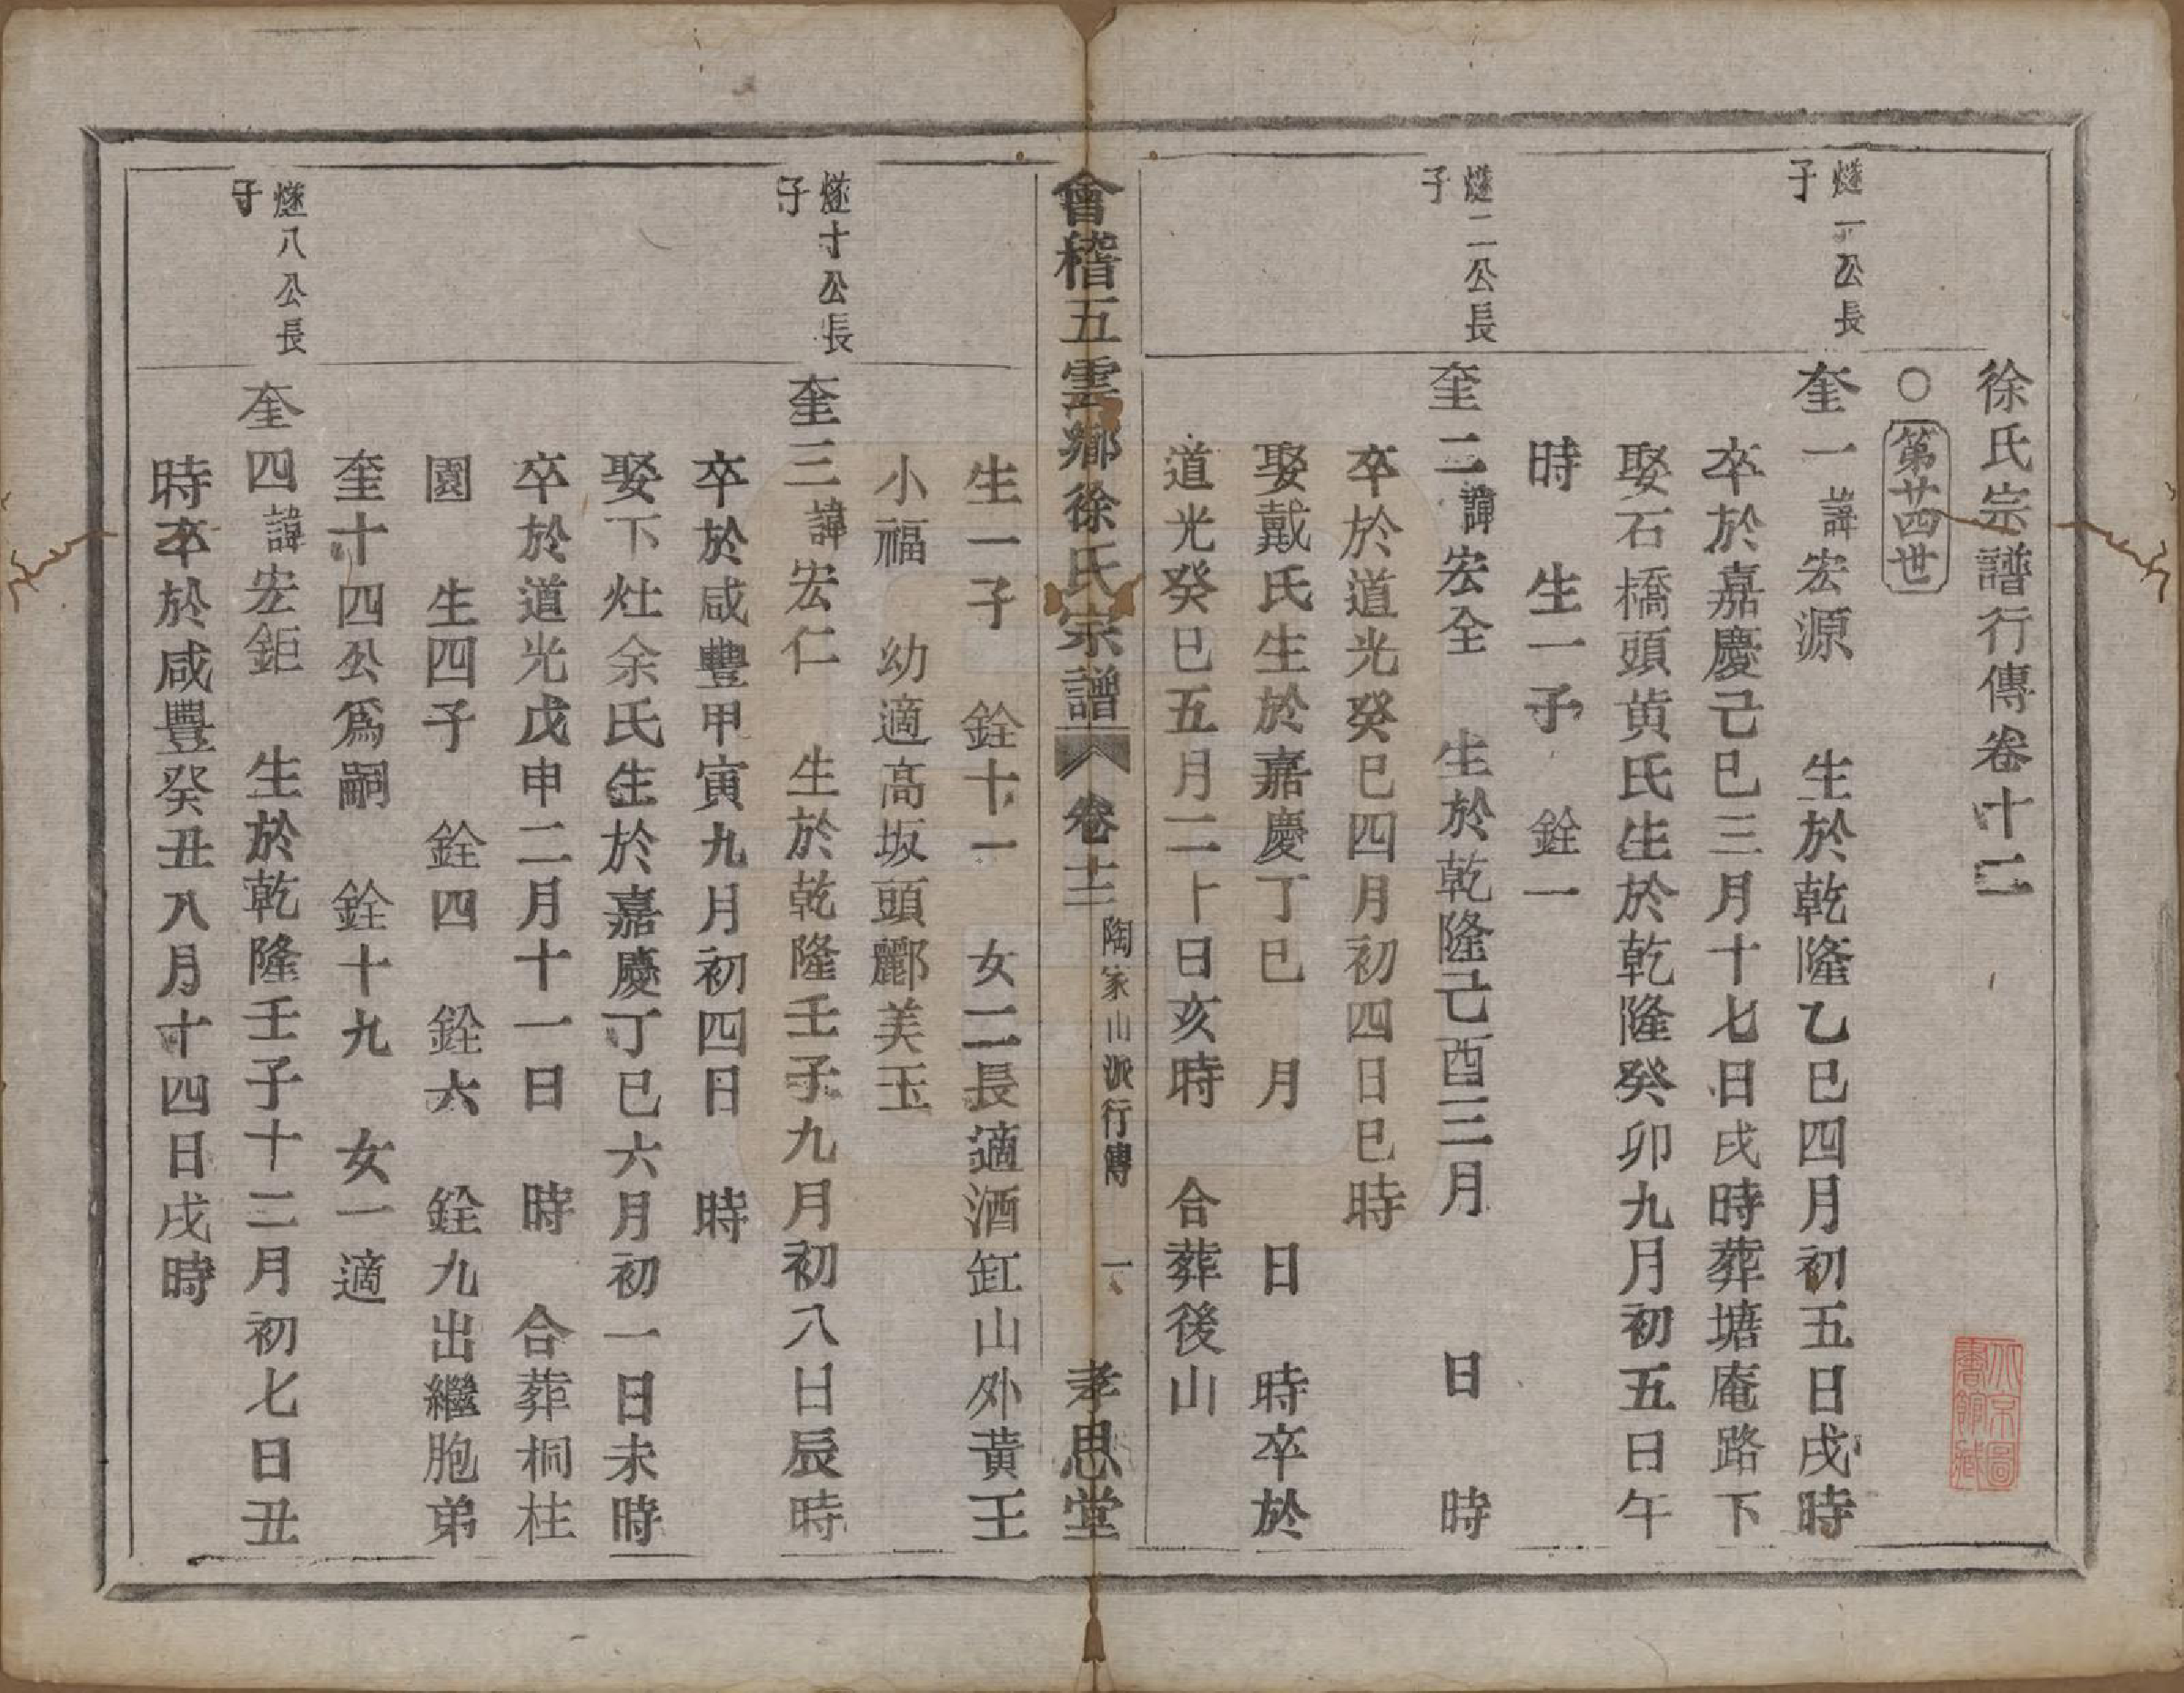 徐氏宗譜行傳卷十二
○第廿四世
燧一公長子
奎一諱宏源 生於乾隆乙巳四月初五日戌時
卒於嘉慶己巳三月十七日戌時葬塘庵路下
娶石橋頭黄氏生於乾隆癸卯九月初五日午
時 生一子 銓一
燧二公長子
奎二諱宏全 生於乾隆己酉三月 日 時
卒於道光癸巳四月初四日巳時
娶戴氏生於嘉慶丁巳 月 日 時卒於
道光癸巳五月二十日亥時 合葬後山
會稽五雲鄉徐氏宗譜 卷十二 陶家山派行傳 一 孝思堂
生一子 銓十一 女二長適酒缸山外黄王
小福 幼適高坂頭酈美玉
燧十公長子
奎三諱宏仁 生於乾隆壬子九月初八日辰時
卒於咸豐甲寅九月初四日 時
娶下灶余氏生於嘉慶丁巳六月初一日未時
卒於道光戊申二月十一日 時 合葬桐柱
園 生四子 銓四 銓六 銓九出繼胞弟
奎十四公爲嗣 銓十九 女一適
燧八公長子
奎四諱宏鉅 生於乾隆壬子十二月初七日丑
時卒於咸豐癸丑八月十四日戌時